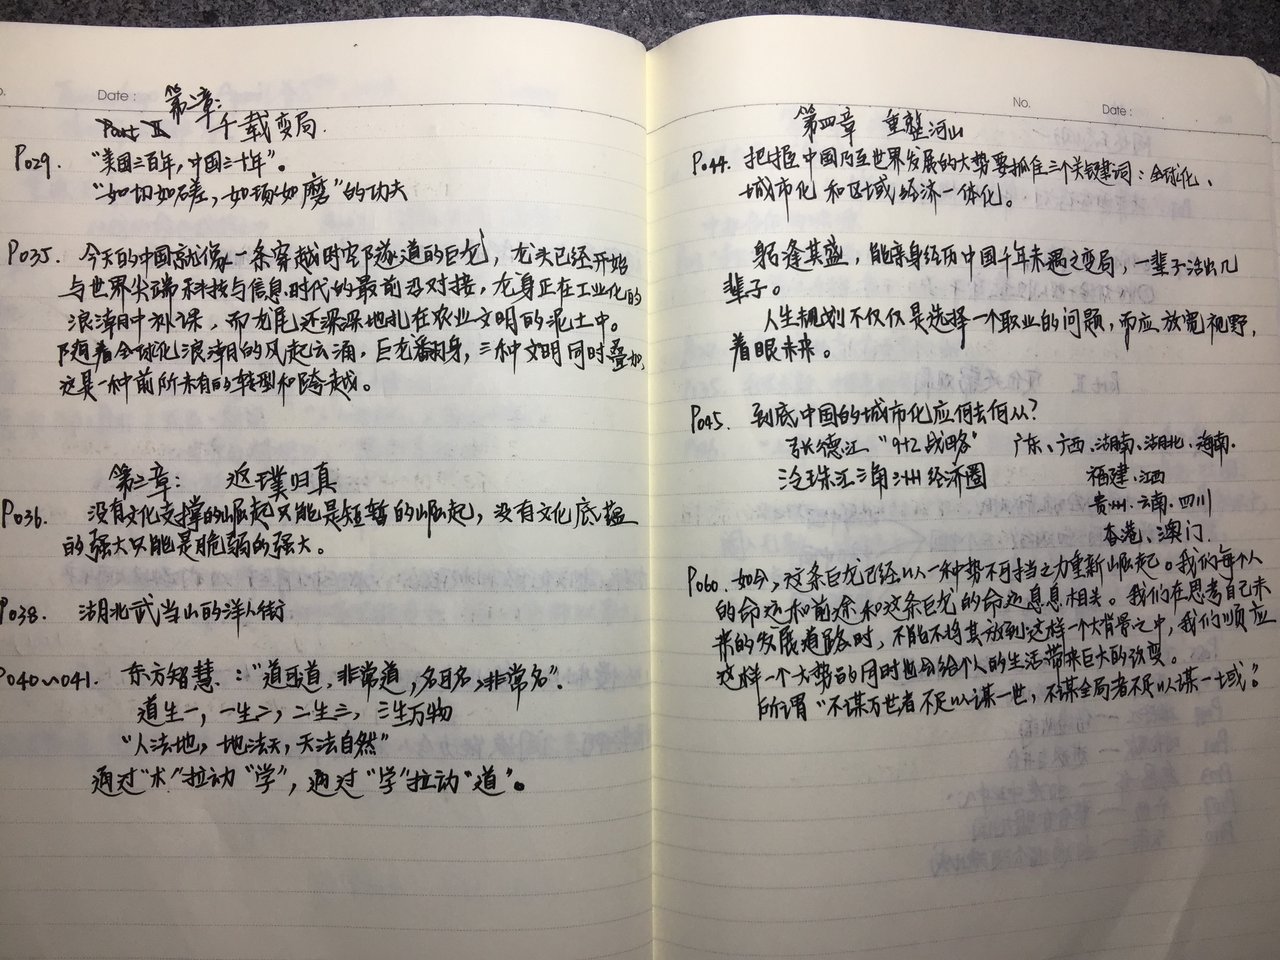 Date :
第二章:
Part II 千载变局.
P029. “美国三百年，中国三十年”。
“如切如磋，如琢如磨”的功夫
P035. 今天的中国就像一条穿越时空隧道的巨龙，龙头已经开始
与世界尖端科技与信息时代的最前沿对接，龙身正在工业化的
浪潮中补课，而龙尾还深深地扎在农业文明的泥土中。
随着全球化浪潮的风起云涌，巨龙翻身，三种文明同时叠加，
这是一种前所未有的转型和跨越。
第三章: 返璞归真
P036. 没有文化支撑的崛起只能是短暂的崛起，没有文化底蕴
的强大只能是脆弱的强大。
P038. 湖北武当山的洋人街
P040~041. 东方智慧：“道可道，非常道，名可名，非常名”.
道生一，一生二，二生三，三生万物
“人法地，地法天，天法自然”
通过“术”拉动“学”，通过“学”拉动“道”。
No. Date :
第四章 重整河山
P044. 把握中国乃至世界发展的大势要抓住三个关键词：全球化、
城市化和区域经济一体化。
躬逢其盛，能亲身经历中国千年未遇之变局，一辈子活出几
辈子。
人生规划不仅仅是选择一个职业的问题，而应放宽视野，
着眼未来。
P045. 到底中国的城市化应何去何从？
张德江 “9+2战略” 广东、广西、湖南、湖北、海南.
泛珠江三角洲经济圈 福建、江西
贵州、云南、四川
香港、澳门.
P060. 如今，这条巨龙已经以一种势不可挡之力重新崛起。我们每个人
的命运和前途和这条巨龙的命运息息相关。我们在思考自己未
来的发展道路时，不能不将其放到这样一个大背景之中，我们顺应
这样一个大势的同时也会给个人的生活带来巨大的改变。
所谓“不谋万世者不足以谋一世，不谋全局者不足以谋一域”。